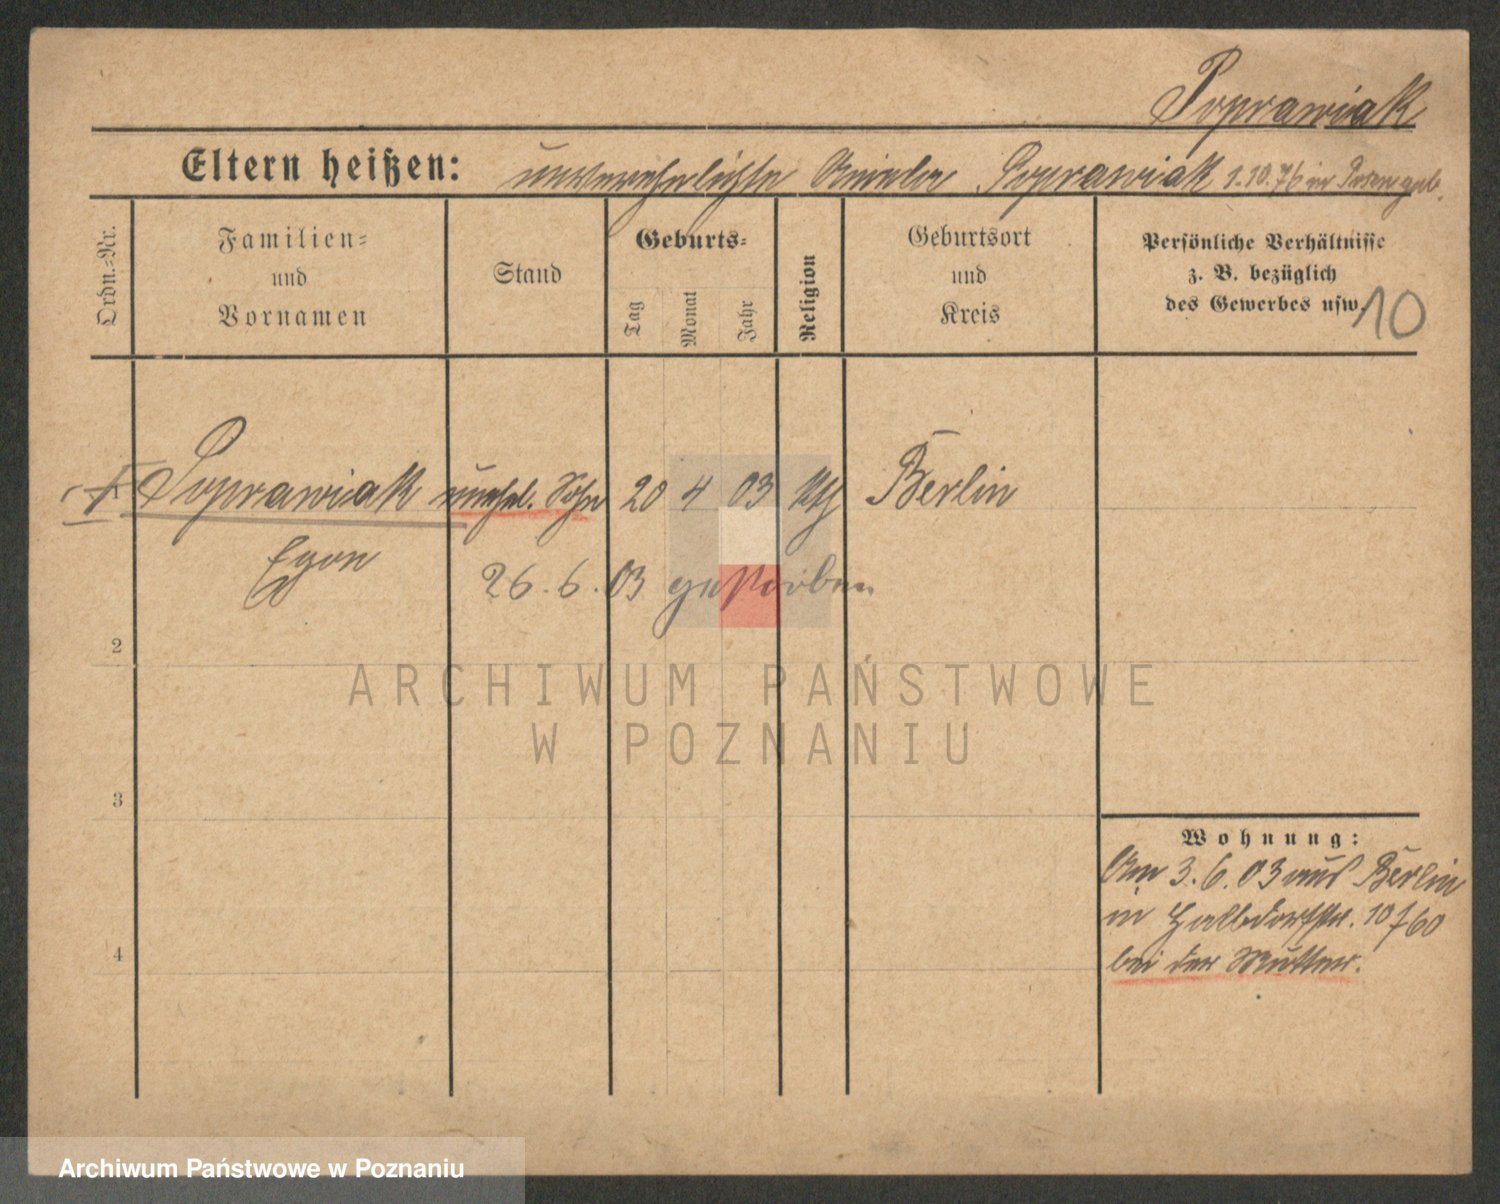 Poprawiak
Eltern heißen: unverehelichte Poprawiak 1.10.76 in Posen geb.
Ordn.-Nr.
Familien-
und
Vornamen
Stand
Geburts-
Tag
Monat
Jahr
Religion
Geburtsort
und
Kreis
Persönliche Verhältnisse
z. B. bezüglich
des Gewerbes usw.
10
1 Poprawiak unehel. Sohn 20 4 03 kth Berlin
Egon
26.6.03 gestorben
2
ARCHIWUM PAŃSTWOWE
W POZNANIU
3
4
Wohnung:
Am 3.6.03 aus Berlin
in Halbdorfstr. 10
bei der Mutter.
Archiwum Państwowe w Poznaniu